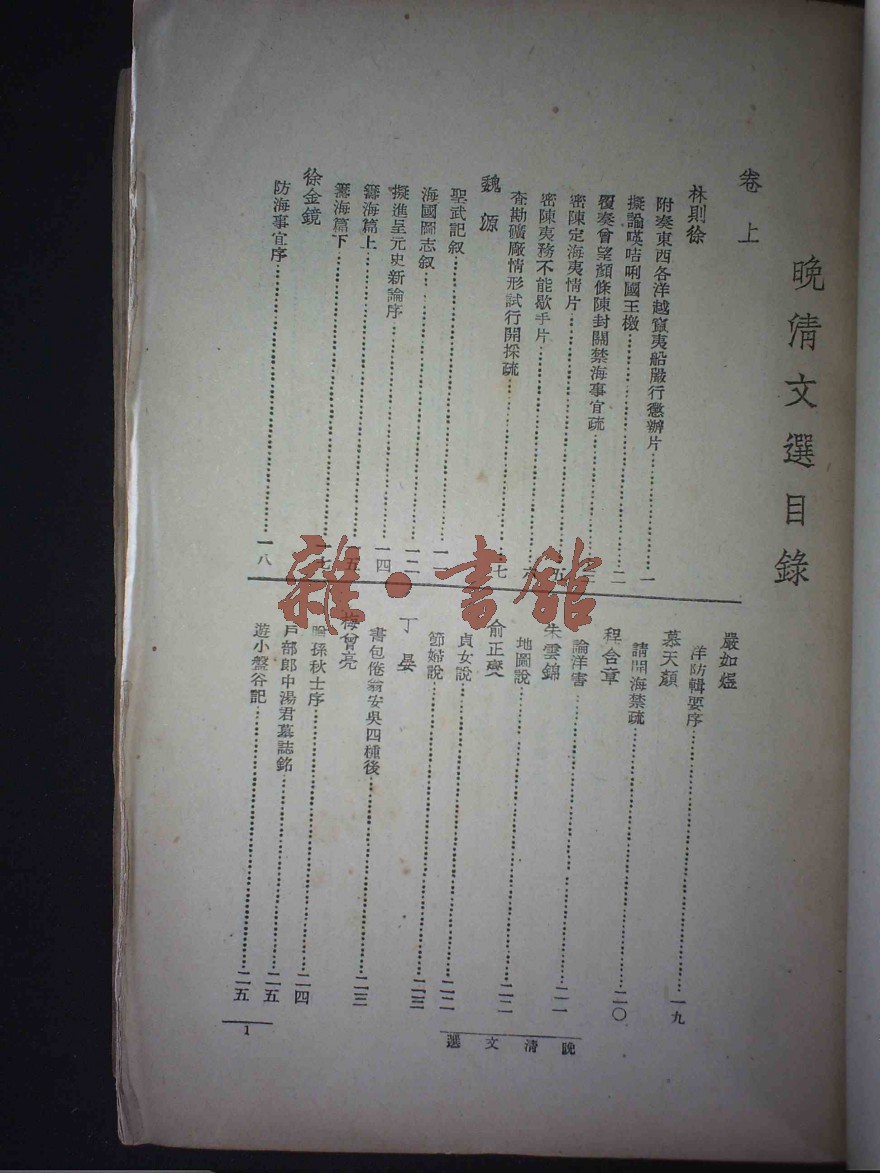 晚清文選目錄
卷上
林則徐
附奏東西各洋越竄夷船嚴行懲辦片……一
擬諭㗎咭唎國王檄……二
覆奏曾望顏條陳封關禁海事宜疏……三
密陳定海夷情片……
密陳夷務不能歇手片……六
查勘礦廠情形試行開採疏……七
魏源
聖武記叙……一一
海國圖志叙……一二
擬進呈元史新論序……一四
籌海篇上……一五
籌海篇下……一七
徐金鏡
防海事宜序……一八
嚴如煜
洋防輯要序……一九
慕天顏
請開海禁疏……二〇
程含章
論洋害……二一
朱雲錦
地圖說……二二
俞正燮
貞女說……二二
節婦說……二三
丁晏
書包倦翁安吳四種後……二三
梅曾亮
贈孫秋士序……二四
戶部郎中湯君墓誌銘……二五
遊小盤谷記……二五
晚清文選
1
雜·書館